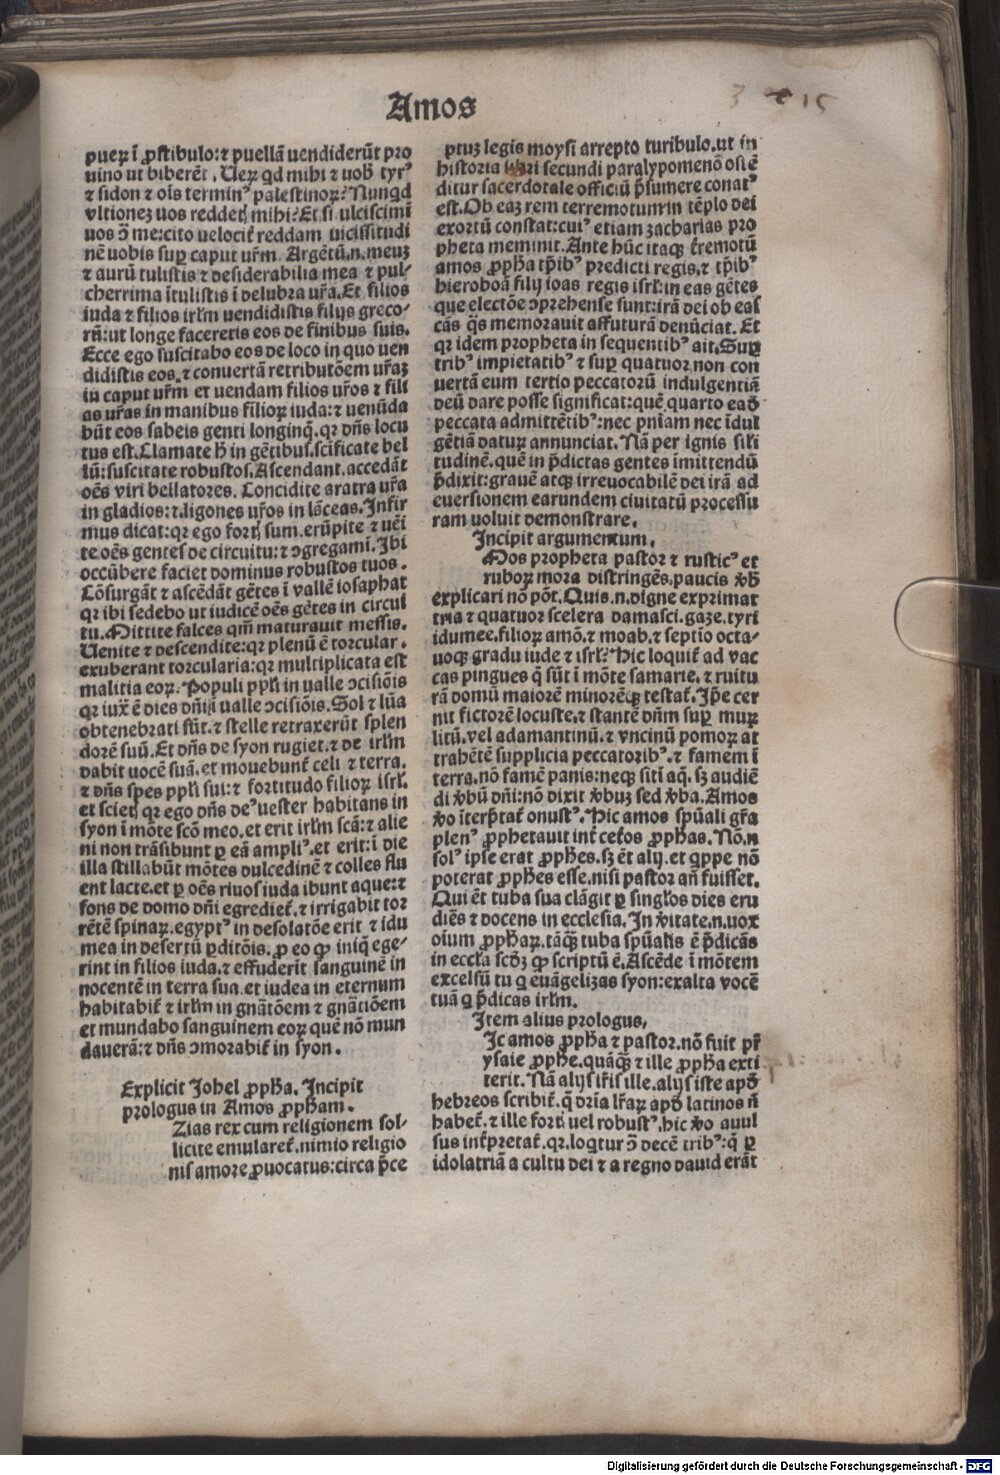 Amos
3 15
pueꝝ ī ꝓstibulo:⁊ puellā uendiderūt pro
uino ut biberēt. Ueꝝ qd mihi ⁊ uob̄ tyrꝰ
⁊ sidon ⁊ oīs terminꝰ palestinoꝝ? Nunqd
vltionez uos reddetꝭ mihi? Et si ulciscimī
uos ↄ̄ me:cito uelocit̄ reddam uicissitudi
nē uobis suꝑ caput ur̄m. Argētū.n.meuz
⁊ aurū tulistis ⁊ desiderabilia mea ⁊ pul-
cherrima ītulistis ī delubra ur̄a. Et filios
iuda ⁊ filios irl̄m uendidistis filijs greco-
rū:ut longe faceretis eos de finibus suis.
Ecce ego suscitabo eos de loco in quo uen
didistis eos.⁊ conuertā retributōem ur̄aꝫ
in caput ur̄m et uendam filios ur̄os ⁊ fili
as ur̄as in manibus filioꝝ iuda:⁊ uenūda
būt eos sabeis genti longinq̄. qꝛ dn̄s locu
tus est. Clamate h̄ in gētibus. scīficate bel
lū:suscitate robustos. Ascendant. accedāt
oēs viri bellatores. Concidite aratra ur̄a
in gladios:⁊.ligones ur̄os in lāceas. Infir
mus dicat:qꝛ ego fortꝭ sum. erūpite ⁊ uēi
te.oēs gentes de circuitu:⁊ ↄgregamī. Ibi
occūbere faciet dominus robustos tuos.
Cōsurgāt ⁊ ascēdāt gētes ī vallē iosaphat
qꝛ ibi sedebo ut iudicē oēs gētes in circui
tu. Mittite falces qm̄ maturauit messis.
Uenite ⁊ descendite:qꝛ plenū ē torcular.
exuberant torcularia:qꝛ multiplicata est
malitia eoꝝ. Populi ppl̄i in ualle ↄcisiōis
qꝛ iux̄ ē dies dn̄i ī ualle ↄcisiōis. Sol ⁊ lūa
obtenebrati sūt.⁊ stelle retraxerūt splen
dorē suū. Et dn̄s de syon rugiet.⁊ de irl̄m
dabit uocē suā.et mouebunt̄ celi ⁊ terra.
⁊ dn̄s spes ppl̄i sui:⁊ fortitudo filioꝝ isrl̄.
et scietꝭ qꝛ ego dn̄s deꝰ uester habitans in
syon ī mōte scō meo.et erit irl̄m scā:⁊ alie
ni non trāsibunt ꝑ eā ampliꝰ.et erit:ī die
illa stillabūt mōtes dulcedinē ⁊ colles flu
ent lacte.et ꝑ oēs riuos iuda ibunt aque:⁊
fons de domo dn̄i egrediet̄.⁊ irrigabit tor
rētē spinaꝝ.egyptꝰ in desolatōe erit ⁊ idu
mea in desertū ꝑditōis. ꝓ eo ꝙ iniq̄ ege-
rint in filios iuda.⁊ effuderīt sanguinē in
nocentē in terra sua.et iudea in eternum
habitabit̄ ⁊ irl̄m in gn̄atōem ⁊ gn̄atiōem
et mundabo sanguinem eoꝝ quē nō mun
dauerā:⁊ dn̄s ↄmorabit̄ in syon.
Explicit Johel ꝓph̄a. Incipit
prologus in Amos ꝓph̄am.
Zias rex cum religionem sol-
licite emularet̄.nimio religio
nis amore ꝓuocatus:circa p̄ce
ptuz legis moysi arrepto turibulo.ut in
historia libri secundi paralypomenō ostē
ditur sacerdotale officiū p̄sumere conatꝰ
est. Ob eaꝫ rem terremotum in tēplo dei
exortū constat:cuiꝰ etiam zacharias pro
pheta meminit. Ante hūc itaqꝫ t̄remotū
amos ꝓph̄a tp̄ibꝰ predicti regis.⁊ tp̄ibꝰ
hieroboā filij ioas regis isrl̄:in eas gētes
que electōe ↄprehense sunt:irā dei ob eas
cās q̄s memorauit affuturā denūciat. Et
qꝛ idem propheta in sequentibꝰ ait. Suꝑ
tribꝰ impietatibꝰ ⁊ suꝑ quatuor non con
uertā eum tertio peccatorū indulgentiā
deū dare posse significat:quē quarto eād
peccata admittētibꝰ:nec pn̄iam nec īdul
gētiā datuꝝ annunciat. Nā per ignis sil̄i
tudinē.quē in p̄dictas gentes īmittendū
p̄dixit:grauē atqꝫ irreuocabilē dei irā ad
euersionem earundem ciuitatū processu
ram uoluit demonstrare.
Incipit argumentum.
Mos propheta pastor ⁊ rusticꝰ et
ruboꝝ mora distringēs.paucis v̄b̄
explicari nō pōt. Quis.n.digne exprimat
tria ⁊ quatuor scelera damasci.gaze.tyri
idumee.filioꝝ amō.⁊ moab.⁊ septio octa-
uoqꝫ gradu iude ⁊ isrl̄? Hic loquit̄ ad vac
cas pingues q̄ sūt ī mōte samarie.⁊ ruitu
rā domū maiorē minorēqꝫ testat̄. Ip̄e cer
nit fictorē locuste.⁊ stantē dn̄m suꝑ muꝝ
litū.vel adamantinū.⁊ vncinū pomoꝝ at
trahētē supplicia peccatoribꝰ.⁊ famem ī
terra.nō famē panis:neqꝫ sitī aq̄.sꝫ audiē
di v̄bū dn̄i:nō dixit v̄buz sed v̄ba. Amos
v̄o īterp̄tat̄ onustꝰ. Hic amos spūali gr̄a
plenꝰ ꝓphetauit int̄ cet̄os ꝓph̄as. Nō.n
solꝰ ipse erat ꝓph̄es.sꝫ ēt alij.et qppe nō
poterat ꝓph̄es esse.nisi pastor an̄ fuisset.
Qui ēt tuba sua clāgit ꝑ singl̄os dies eru
diēs ⁊ docens in ecclesia. In v̄itate.n.uox
oīum ꝓph̄aꝝ.tāq̄ꝫ tuba spūalis ē p̄dicās
in eccl̄a scd̄ꝫ ꝙ scriptū ē. Ascēde ī mōtem
excelsū tu q euāgelizas syon:exalta vocē
tuā q p̄dicas irl̄m.
Item alius prologus,
Ic amos ꝓph̄a ⁊ pastor.nō fuit pr̄
ysaie ꝓph̄e.quāq̄ꝫ ⁊ ille ꝓph̄a exti
terit. Nā alijs īr̄is ille.alijs iste apd̄
hebreos scribit̄.q̄ dr̄ia lr̄aꝝ apd̄ latinos n̄
habet̄.⁊ ille fortꝭ uel robustꝰ.hic v̄o auul
sus int̄pretat̄.qꝛ.loqtur ↄ̄ decē tribꝰ:q̄ ꝑ
idolatriā a cultu dei ⁊ a regno dauid erāt
Digitalisierung gefördert durch die Deutsche Forschungsgemeinschaft - DFG